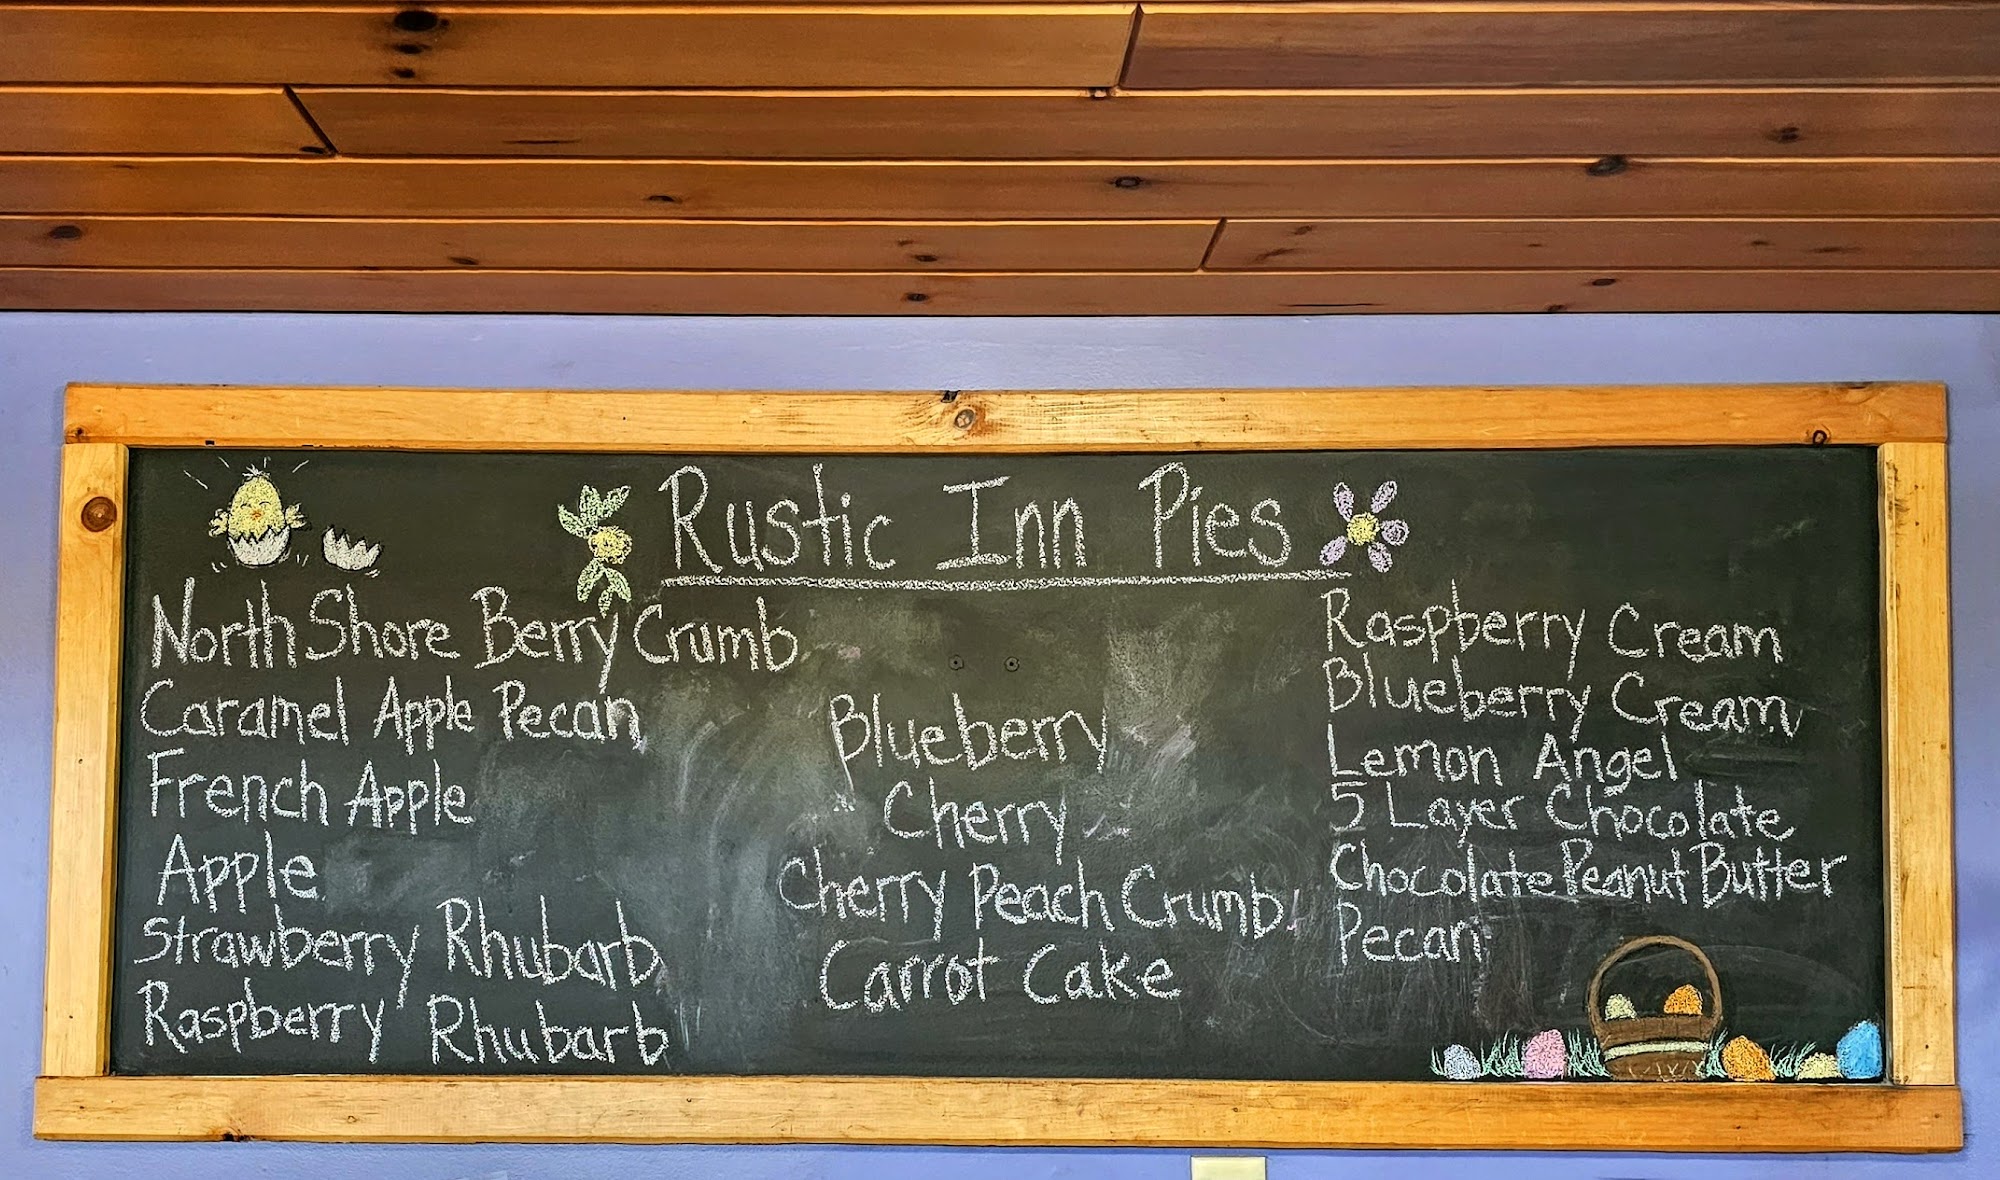 Rustic Inn Pies
North Shore Berry Crumb
Caramel Apple Pecan
French Apple
Apple
Strawberry Rhubarb
Raspberry Rhubarb
Blueberry
Cherry
Cherry Peach Crumb
Carrot Cake
Raspberry Cream
Blueberry Cream
Lemon Angel
5 Layer Chocolate
Chocolate Peanut Butter
Pecan